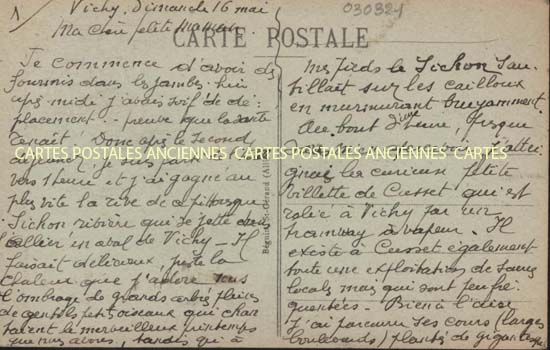 1
Vichy, Dimanche 16 mai
030321
Ma chère petite Maman
CARTE POSTALE
Je commence d'avoir des
fourmis dans les jambes. hier
après midi j'avais soif de dé-
placement. — preuve que la santé
venait. Donc après le second
déjeuner je suis parti
vers 1 heure et j'ai gagné au
plus vite la rive de
Sichon rivière qui se jette dans
l'allier en aval de Vichy — Il
faisait délicieux, juste la
chaleur que j'adore sous
l'ombrage de grands arbres pleins
de gentils petits oiseaux qui chan
taient le merveilleux printemps
que nous avons, tandis qu'à
Béguin, St-Gérand (All
CARTES POSTALES ANCIENNES CARTES POSTALES ANCIENNES CARTES
mes pieds le Sichon sau
tillait sur les cailloux
en murmurant bruyamment.
Au bout d'une heure, lorsque
gnais la curieuse petite
villette de Cusset qui est
reliée à Vichy par un
tramway à vapeur. Il
existe à Cusset également
toute une exploitation de
locales mais qui sont peu fré-
quentées — Bien à l'aise
j'ai parcouru ses cours (larges
boulevards) plantés de gigantesques